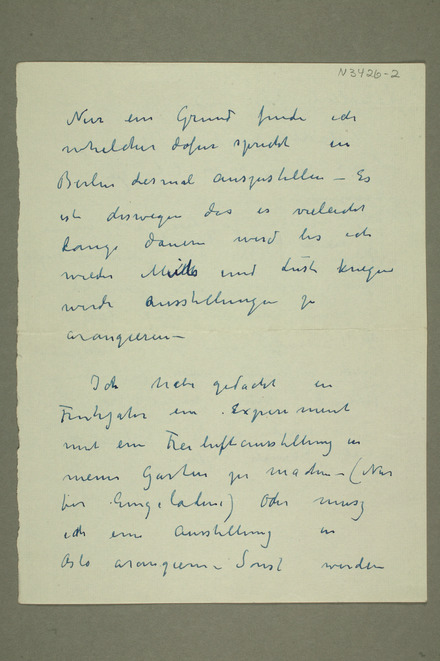 N3426-2
Nur ein Grund finde ich
welcher dafur spricht in
Berlin desmal auszustellen – Es
ist deswegen das es vieleicht
lange dauern werd bis ich
wieder und Lust kriegen
werde Ausstellungen zu
arangieren –
Ich habe gedacht in
Fruhjahr ein Experiment
mit ein Freiluftausstellung in
meine Garten zu machen – (Nur
fur Eingeladene) Oder musz
ich eine Ausstellung in
Oslo arangieren – Sonst werden